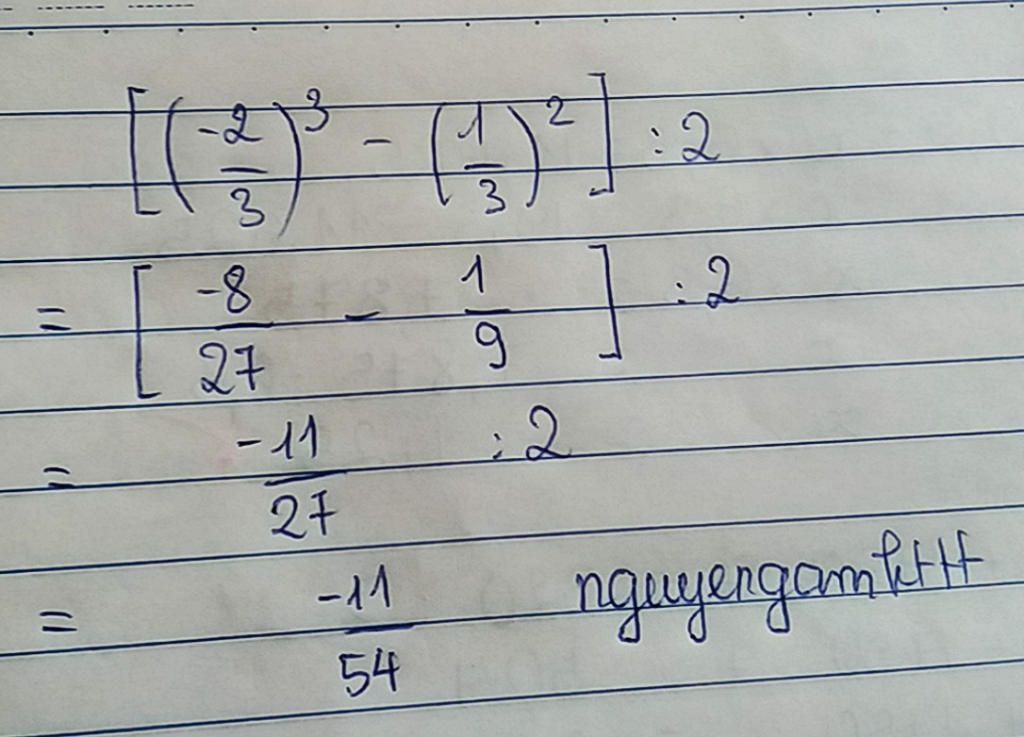 [(-2/3)^3 - (1/3)^2] : 2
= [-8/27 - 1/9] : 2
= -11/27 : 2
= -11/54 nguyengamhttt